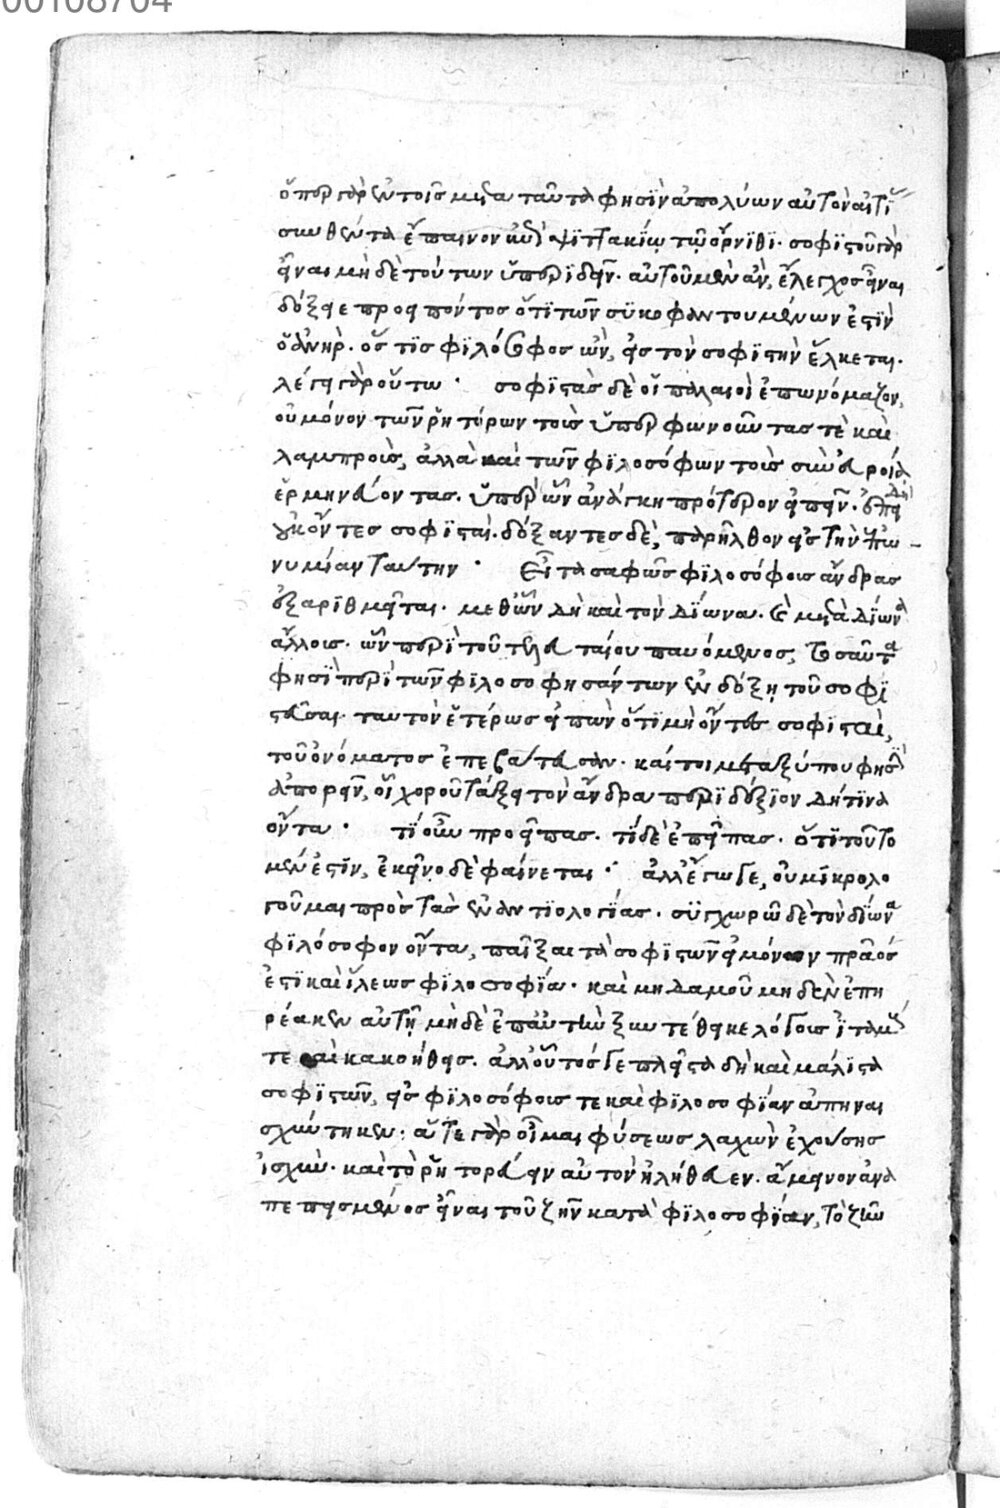 ὅπερ γὰρ ἐν τοῖς μετὰ ταῦτα φησὶν ἀπολύων αὐτὸν αἰτί
συνθέντα ἔπαινον καὶ ψιττακίῳ τῷ ὄρνιθι· σοφιστοῦ γὰρ
εἶναι μὴ δὲ τούτων ὑπεριδεῖν· αὐτοῦ μὲν ἂν, ἔλεγχος εἶναι
δόξειε προειπόντος ὅτι τῶν συκοφαντουμένων ἐστὶν
ὁ ἀνὴρ· ὅς τις φιλόσοφος ὢν, εἰς τὸν σοφιστὴν ἕλκεται·
λέγει γὰρ οὕτω· σοφιστὰς δὲ οἱ παλαιοὶ ἐπωνόμαζον,
οὐ μόνον τῶν ῥητόρων τοὺς ὑπερφωνοῦντας τὲ καὶ
λαμπροὺς, ἀλλὰ καὶ τῶν φιλοσόφων τοὺς σὺν εὐροίᾳ
ἑρμηνεύοντας· ὑπὲρ ὧν ἀνάγκη πρότερον εἰπεῖν· ἐπειδὴ
οὐκ ὄντες σοφισταὶ· δόξαντες δὲ, παρῆλθον εἰς τὴν ἐπω-
νυμίαν ταύτην· εἶτα σαφῶς φιλοσόφους ἄνδρας
ἐξαριθμεῖται· μεθ ὧν δὴ καὶ τὸν δίωνα· καὶ μετὰ δίωνα
ἄλλους· ὧν περὶ τοῦ τελευταίου παυόμενος, τοσαῦτα
φησὶ περὶ τῶν φιλοσοφησάντων ἐν δόξῃ τοῦ σοφι
στεῦσαι· ταυτὸν ἑτέρως εἰπὼν ὅτι μὴ ὄντες σοφισταὶ,
τοῦ ὀνόματος ἐπεβάτευσαν· καίτοι μεταξύ που φησὶν
ἀπορεῖν, οἷ χοροῦ τάξει τὸν ἄνδρα περιδέξιον δή τινα
ὄντα· τί οὖν προεῖπας· τί δὲ ἐπεῖπας· ὅτι τοῦτο
μέν ἐστιν, ἐκεῖνο δὲ φαίνεται· ἀλλ ἔγωγε, οὐ μικρολο
γοῦμαι πρὸς τὰς ἐναντιολογίας· συγχωρῶ δὲ τὸν δίωνα
φιλόσοφον ὄντα, παῖξαι τὰ σοφιστῶν εἰ μόνον πρᾶος
ἐστι καὶ ἵλεως φιλοσοφίᾳ· καὶ μηδαμοῦ μηδὲν ἐπη
ρέακεν αὐτῇ μὴ δὲ ἐπ αὐτὴν ξυντέθηκε λόγους ἰταμούς
τε καὶ κακοήθεις· ἀλλ οὗτός γε πλεῖστα δὴ καὶ μάλιστα
σοφιστῶν, εἰς φιλοσόφους τε καὶ φιλοσοφίαν ἀπηναι
σχύντηκεν· ἅτε γὰρ οἶμαι φύσεως λαχὼν ἐχούσης
ἰσχὺν· καὶ τὸ ῥητορεύειν αὐτὸν ἠλήθευεν· ἄμεινον ἀνα
πεπεισμένος εἶναι τοῦ ζῆν κατὰ φιλοσοφίαν, τὸ ζῆν